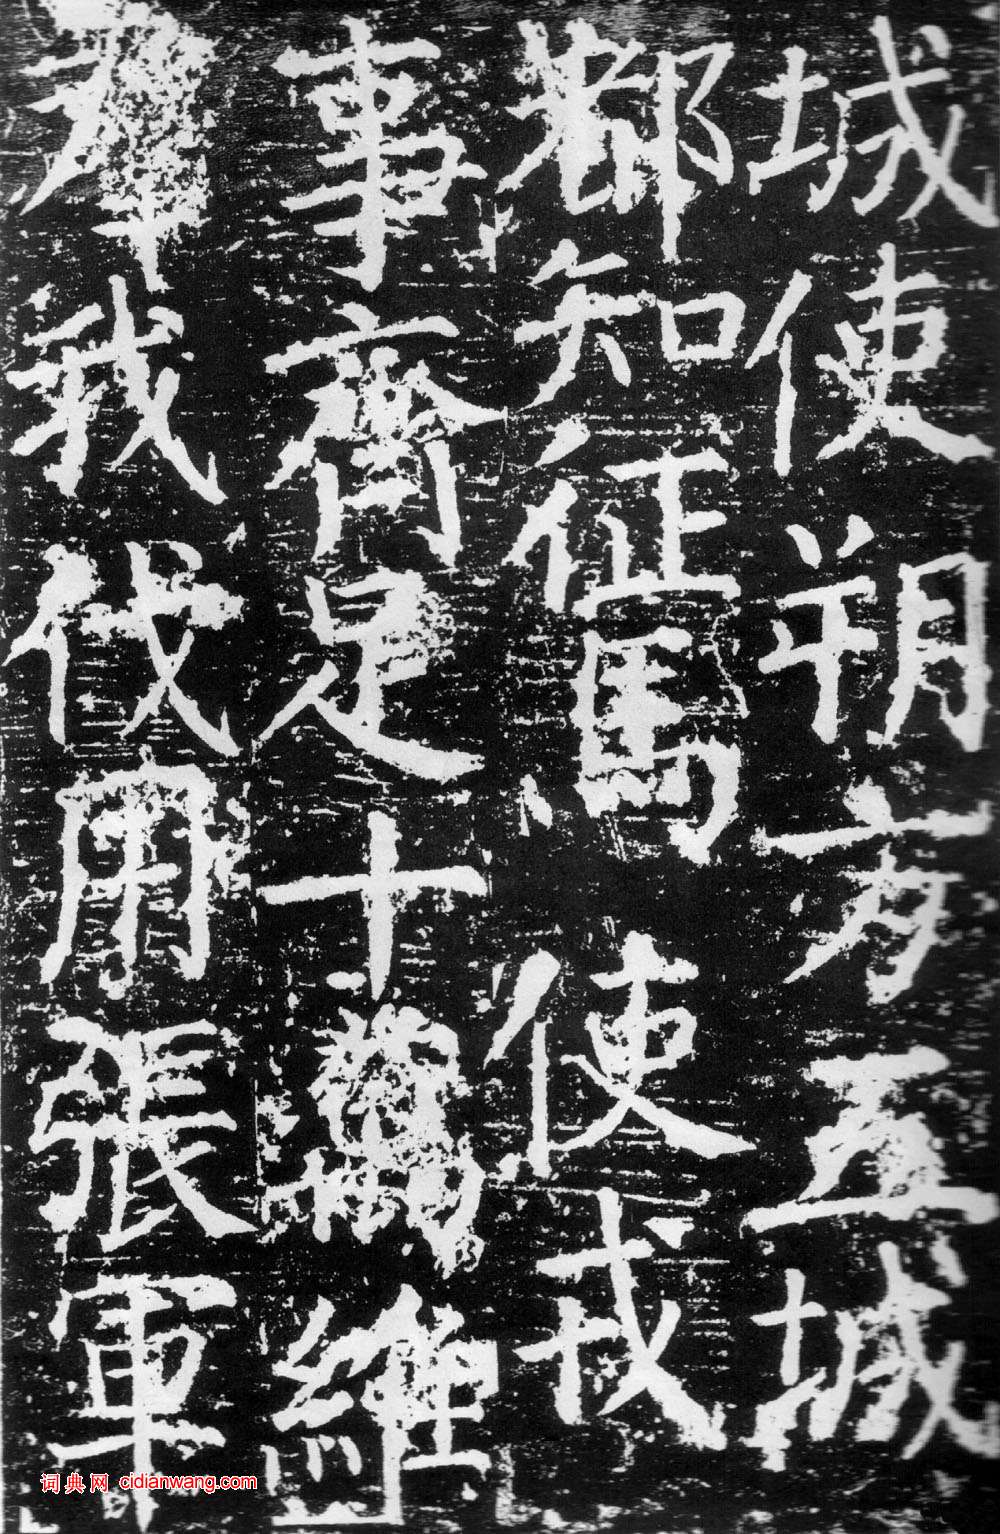 城使朔方五城
都知征馬使戎
事齊足十萬維
羣我伐用張軍
词典网 cidianwang.com